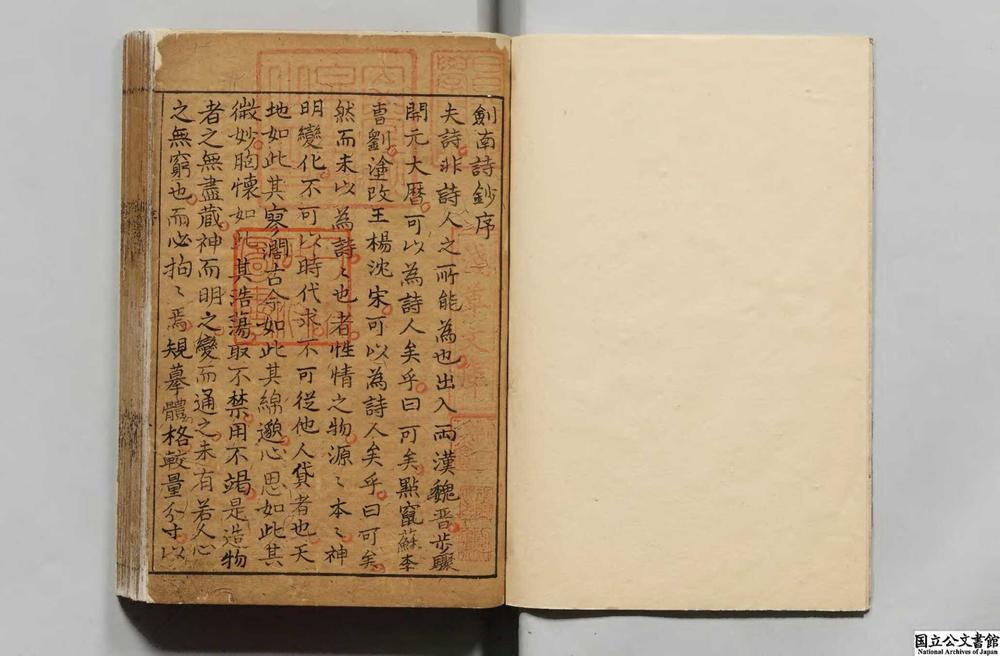 劍南詩鈔序
夫詩非詩人之所能為也出入兩漢魏晋步驟
開元大曆可以為詩人矣乎曰可矣點竄蘇李
曹劉塗改王楊沈宋可以為詩人矣乎曰可矣
然而未以為詩〻也者性情之物源〻本〻神
明變化不可以時代求不可從他人貸者也天
地如此其寥濶古今如此其綿邈心思如此其
微妙胸懷如此其浩蕩取不禁用不竭是造物
者之無盡藏神而明之變而通之未有若人心
之無窮也而必拘〻焉規摹體格較量分寸以
国立公文書館
National Archives of Japan